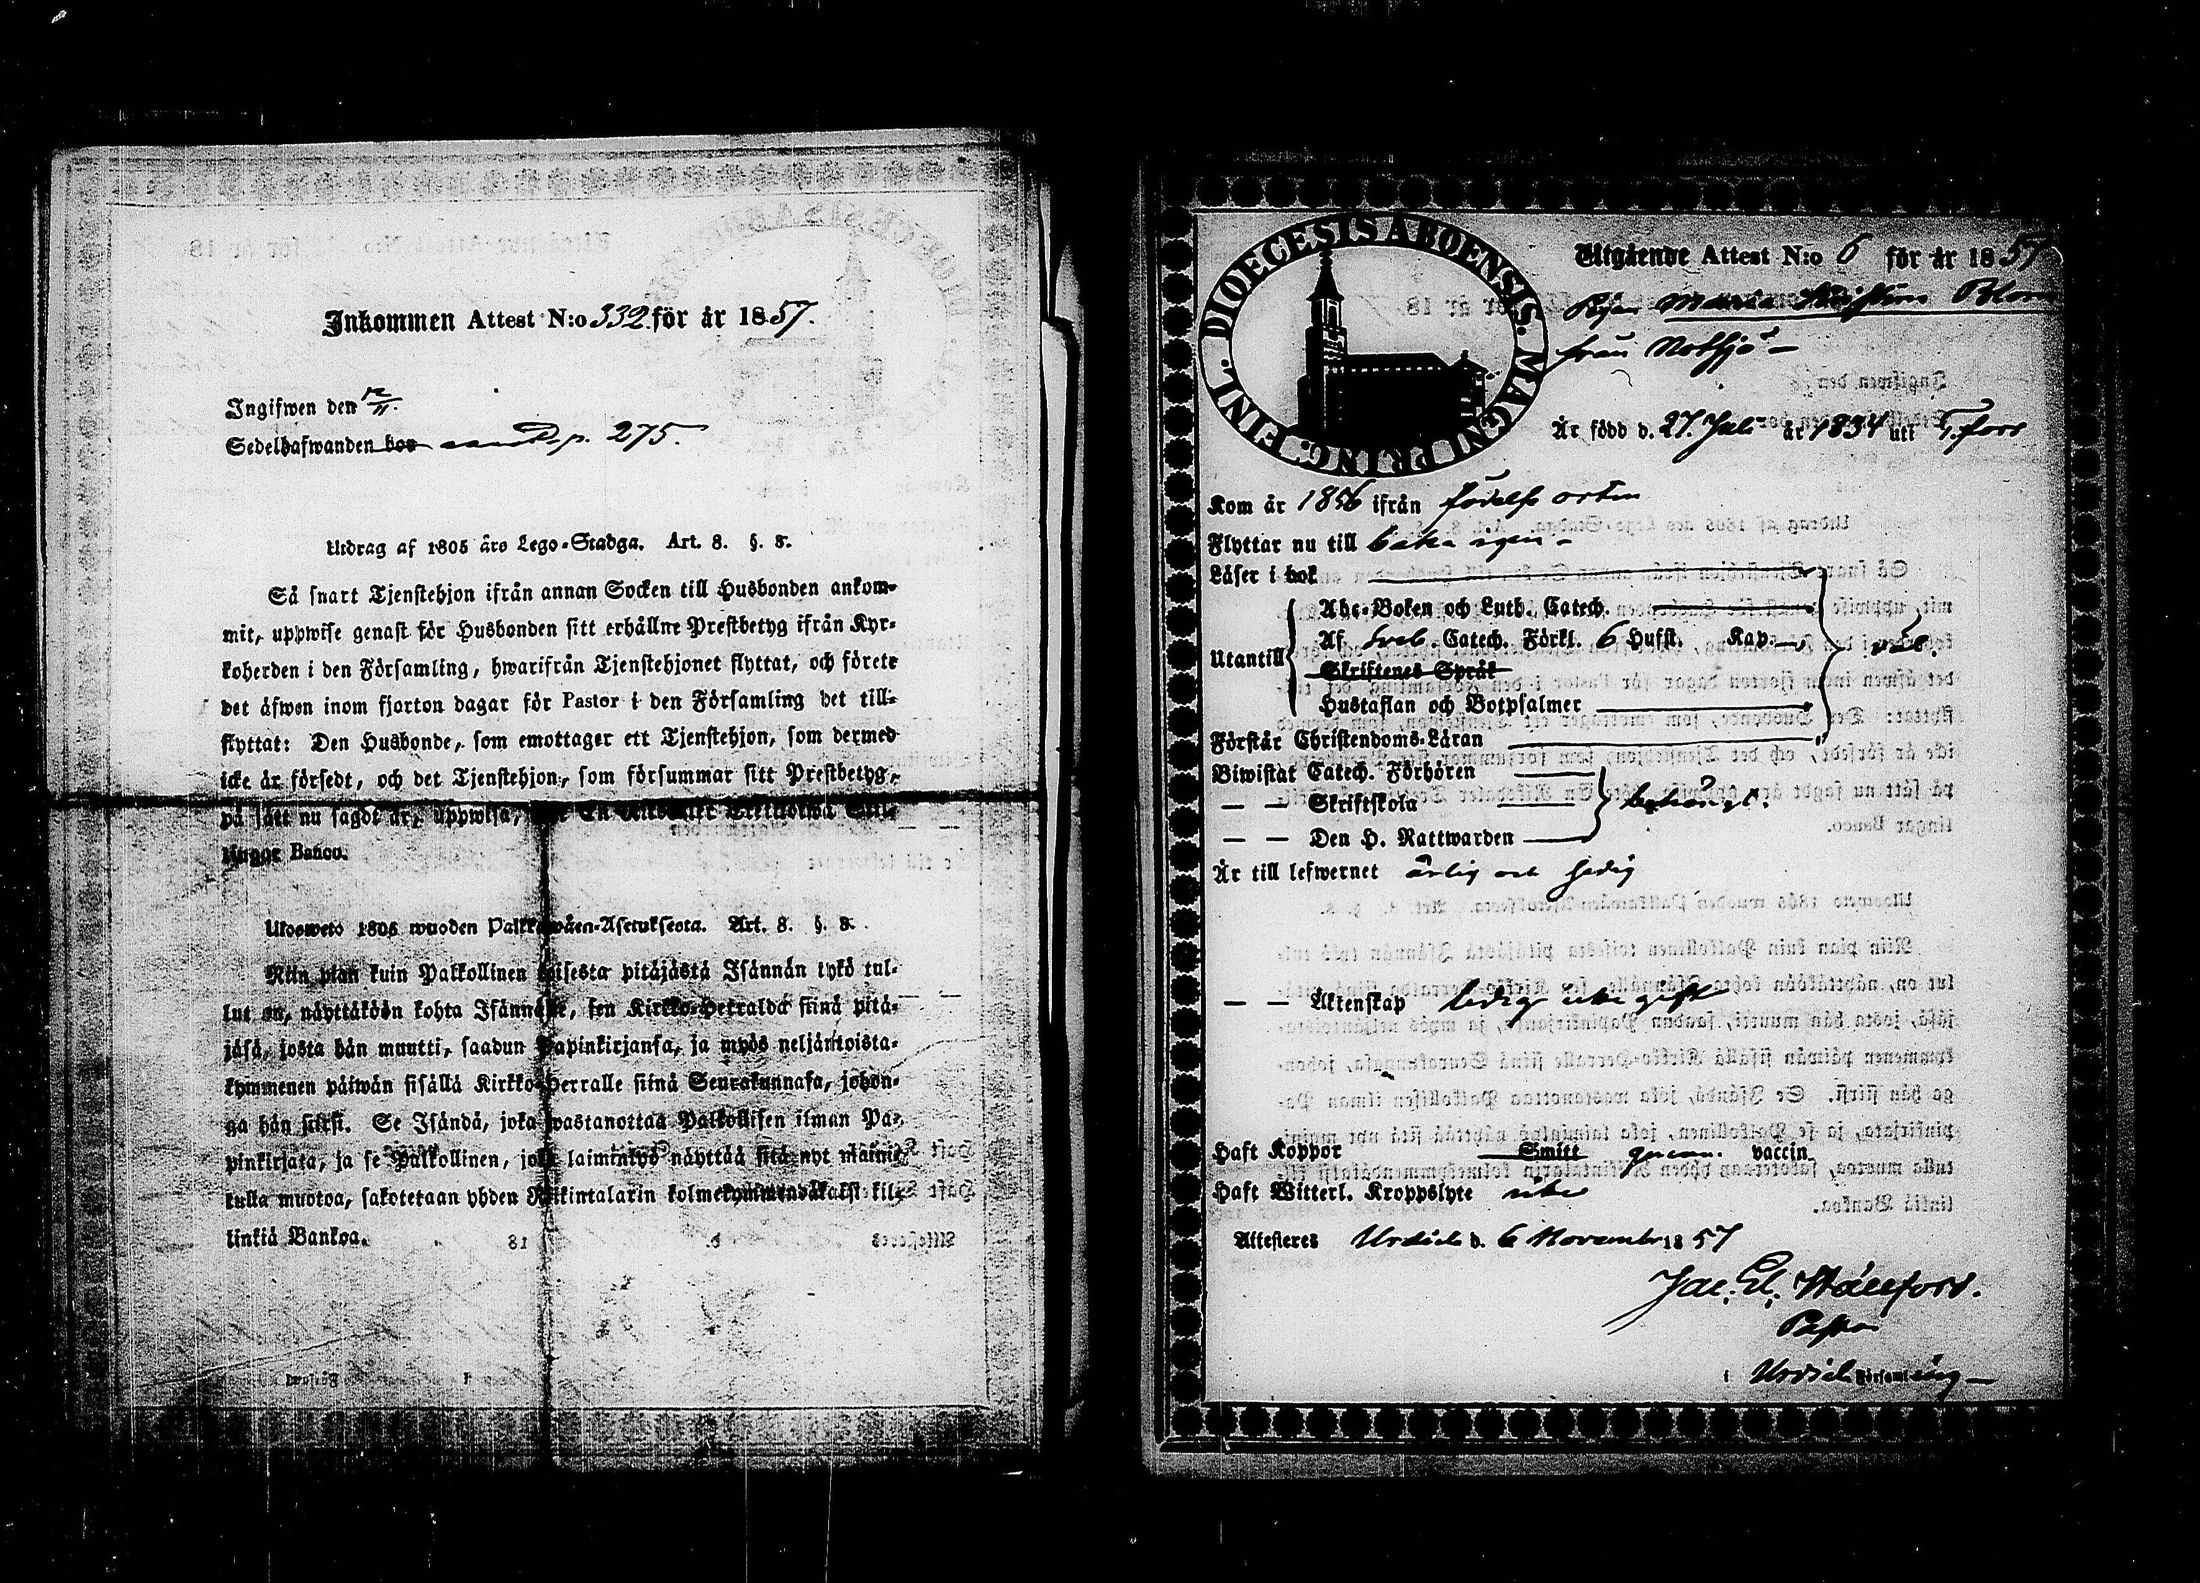 Inkommen Attest N:o 332. för år 1857.
Ingifwen den 12/11.
Sedelhafwanden hos p. 275.
Utdrag af 1805 års Lego-Stadga. Art. 8. §. 8.
Så snart Tjenstehjon ifrån annan Socken till Husbonden ankom-
mit, uppwise genast för Husbonden sitt erhållne Prestbetyg ifrån Kyr-
koherden i den Församling, hwarifrån Tjenstehjonet flyttat, och förete
det äfwen inom fjorton dagar för Pastor i den Församling det till-
flyttat: Den Husbonde, som emottager ett Tjenstehjon, som dermed
icke är försedt, och det Tjenstehjon, som försummar sitt Prestbetyg,
på sätt nu sagdt är, uppwisa,
lingar Banco.
Ulosweto 1805 wuoden Palkkawäen-Asetuksesta. Art. 8. §. 8.
Niin pian kuin Palkollinen toisesta pitäjästä Isännän tykö tul-
lut on, näyttäköön kohta Isännälle, sen Kirkko-Herralda siinä pitä-
jäsä, josta hän muutti, saadun Papinkirjansa, ja myös neljäntoista-
kymmenen päiwän sisällä Kirkko-Herralle siinä Seurakunnasa, johon-
ga hän siirsi. Se Isändä, joka wastanottaa Palkollisen ilman Pa-
pinkirjata, ja se Palkollinen, joka laiminlyö näyttää sitä nyt mainit-
tulla muotoa, sakotetaan yhden Riikintalarin kolmekymmendäkaksi kil-
linkiä Bankoa.
DIOECESIS ABOENSIS. MAGNI PRINC. FINL.
Utgående Attest N:o 6 för år 1857
Pigan Maria Blom
från
Är född d. 27. Juli år 1834 uti T.fors
Kom år 1856 ifrån födelse orten
Flyttar nu till baka igen -
Läser i bok
Utantill
Abc-Boken och Luth. Catech.
Af Sveb Catech. Förkl. 6 Hufst. Kap
Skriftenes Språk
Hustaflan och Botpsalmer
väl.
Förstår Christendoms-Läran
Biwistat Catech. Förhören
— — Skriftskola
— — Den H. Nattwarden
behörigt.
Är till lefwernet ärlig och sedig
— — Äktenskap ledig icke gift
Haft Koppor Smitt genom. vaccin
Haft Witterl. Kroppslyte icke
Attesteres Urdiala d. 6 November 1857
Jac. El. Hällfors.
Pastor
i Urdiala Församling —